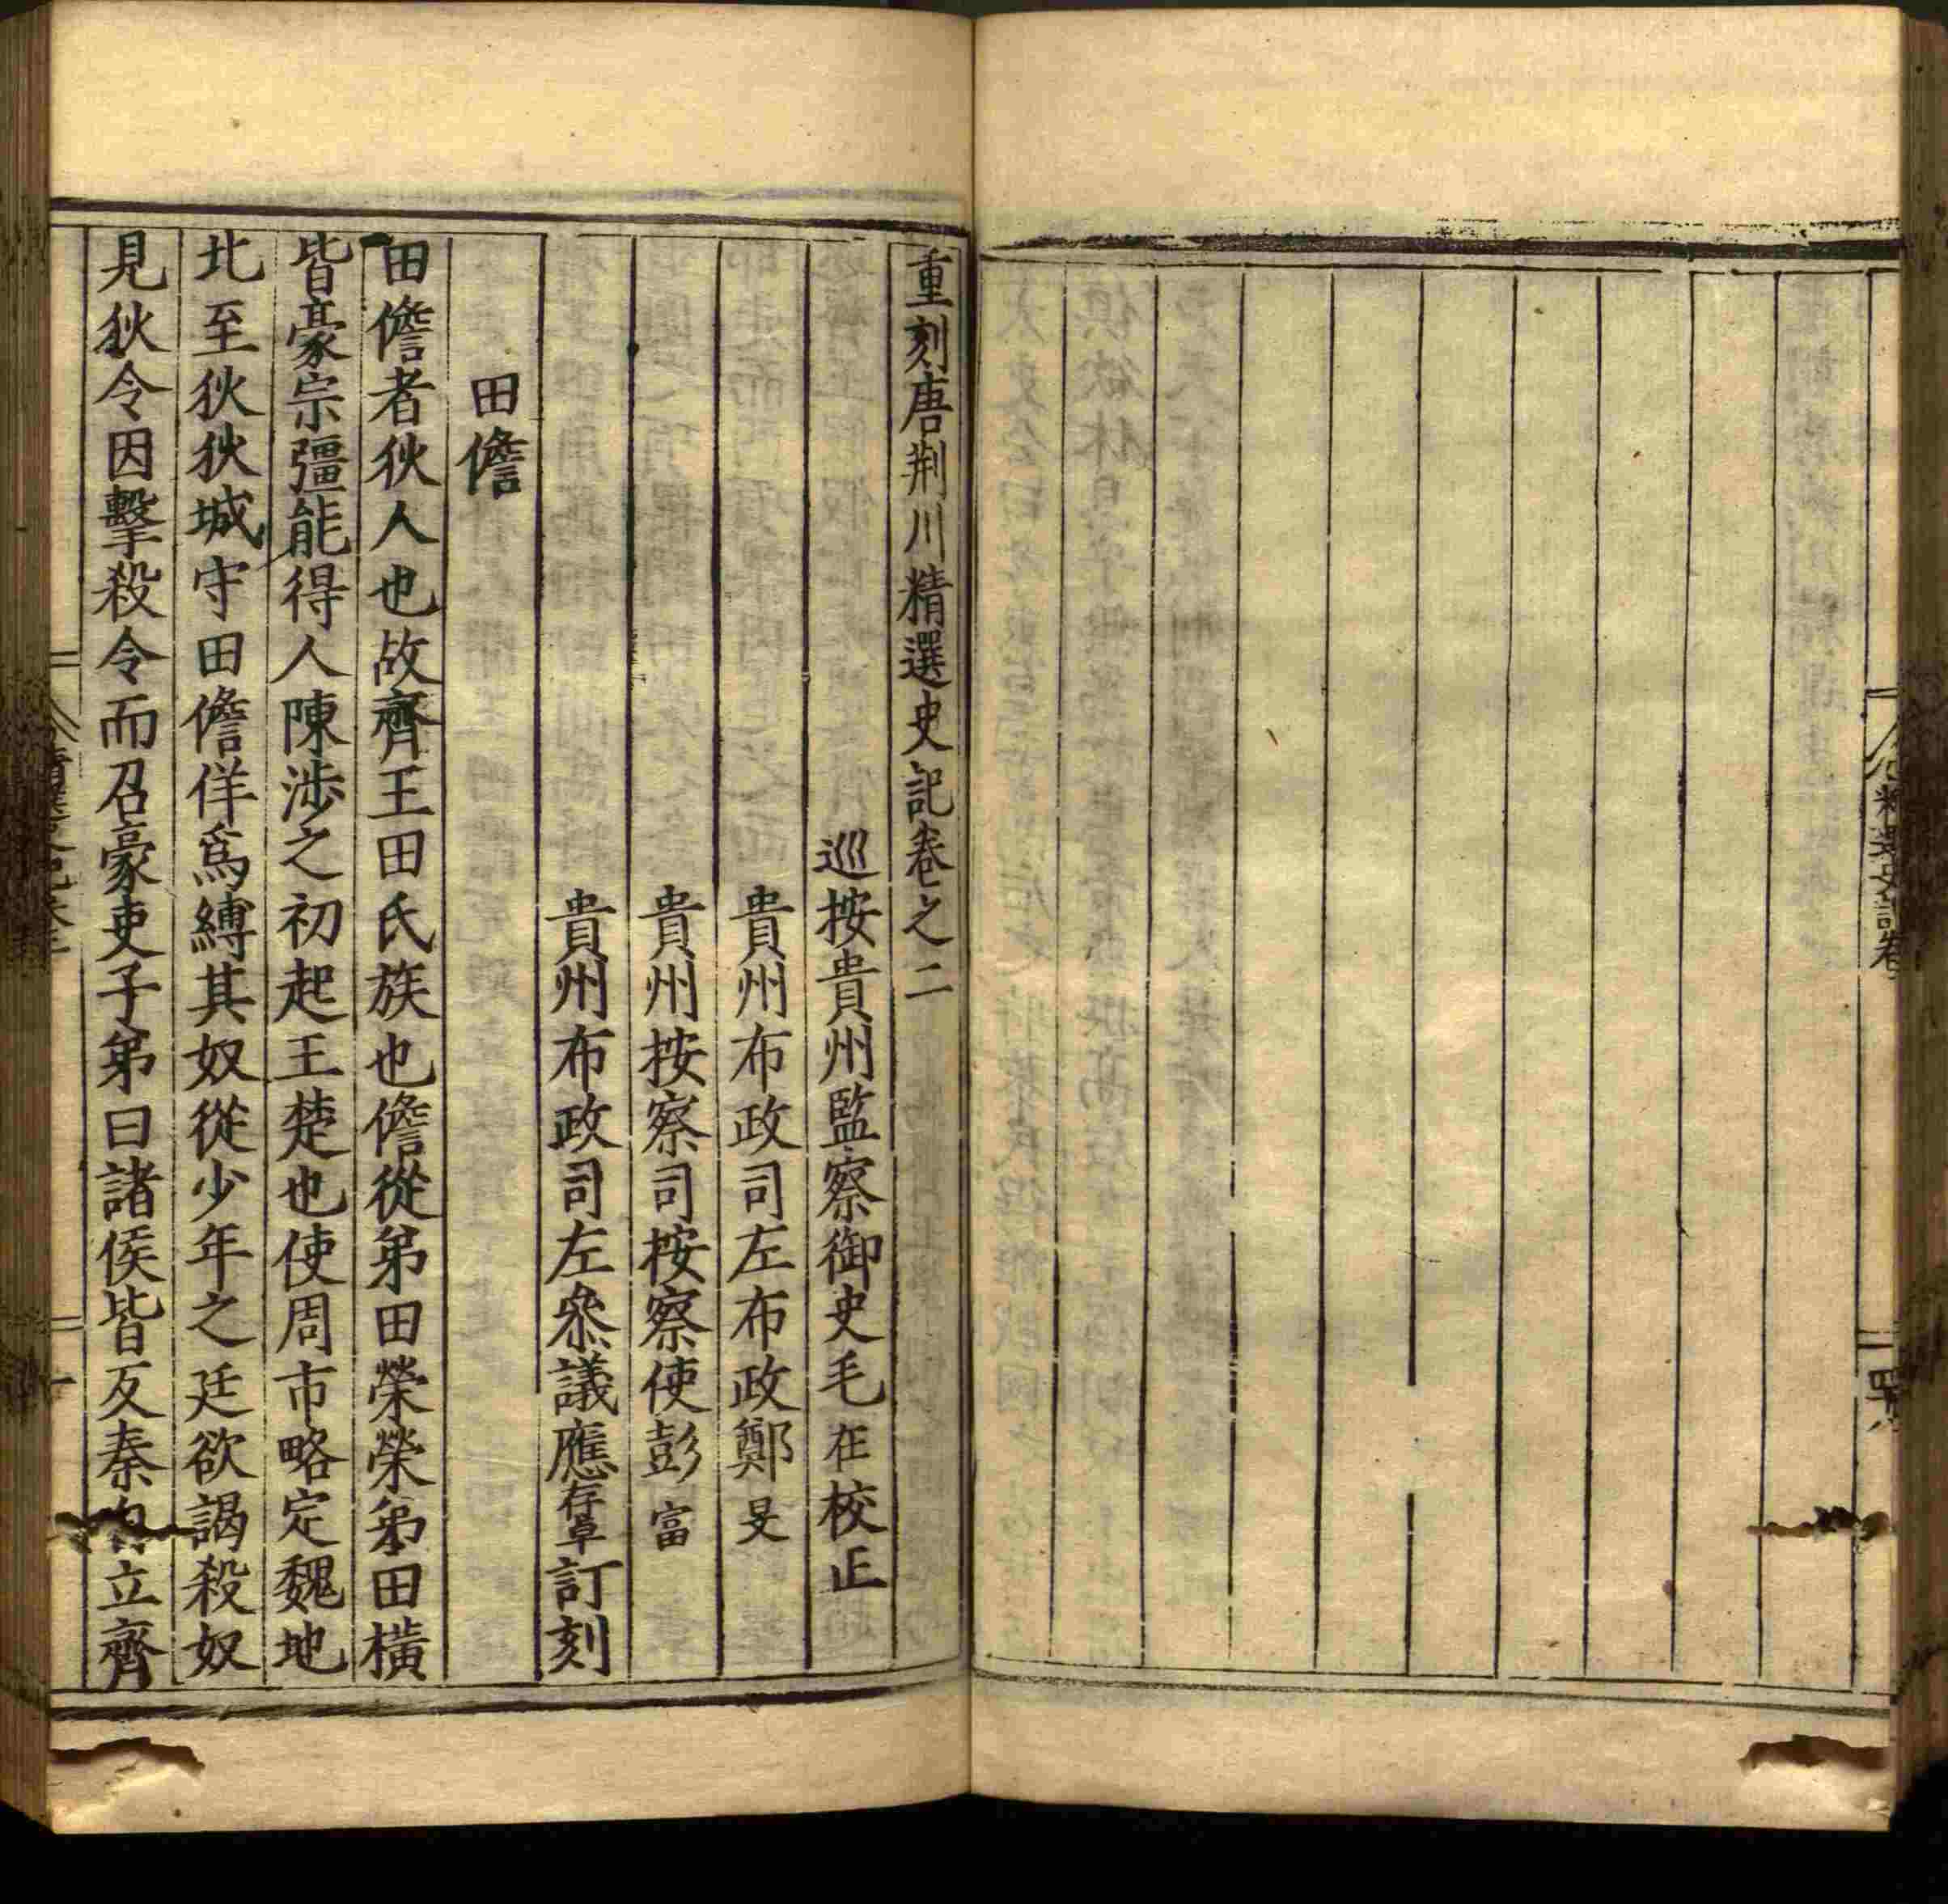 精選史記卷
重刻唐荆川精選史記卷之二
巡按貴州監察御史毛在校正
貴州布政司左布政鄭旻
貴州按察司按察使彭富
貴州布政司左叅議應存卓訂刻
田儋
田儋者狄人也故齊王田氏族也儋從弟田榮榮弟田横
皆豪宗彊能得人陳渉之初起王楚也使周市略定魏地
北至狄狄城守田儋佯爲縛其奴從少年之廷欲謁殺奴
見狄令因擊殺令而召豪吏子弟曰諸侯皆反秦自立齊
一